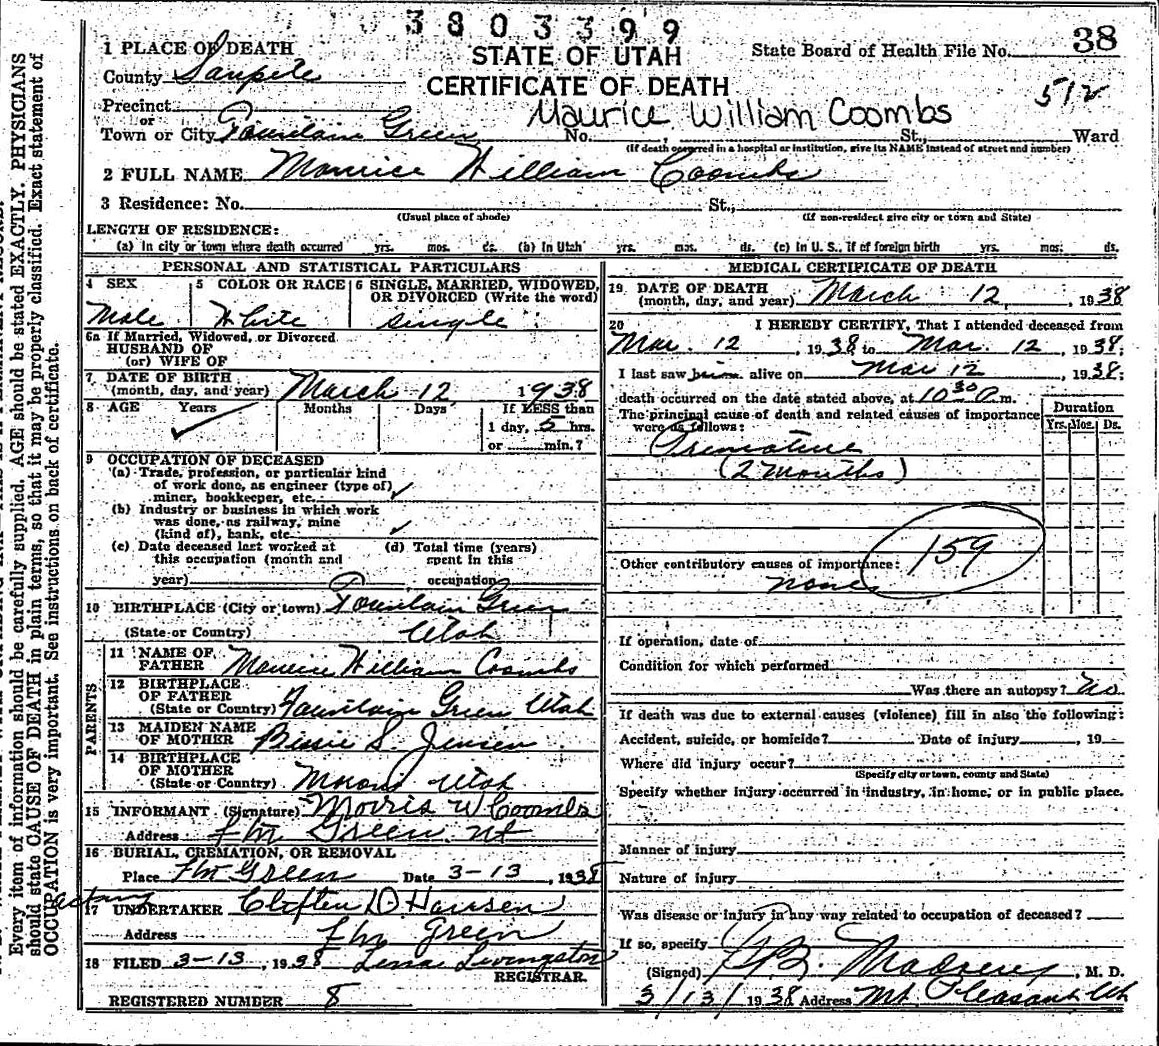 3803399
STATE OF UTAH
CERTIFICATE OF DEATH
State Board of Health File No. 38
512
1 PLACE OF DEATH
County Sanpete
Precinct
or
Town or City Fountain Green No. , St., Ward
Maurice William Coombs
(If death occurred in a hospital or institution, give its NAME instead of street and number)
2 FULL NAME Maurice William Coombs
3 Residence: No. St.,
(Usual place of abode) (If non-resident give city or town and State)
LENGTH OF RESIDENCE:
(a) In city or town where death occurred yrs. mos. ds. (b) In Utah yrs. mos. ds. (c) In U. S., if of foreign birth yrs. mos. ds.
PERSONAL AND STATISTICAL PARTICULARS
4 SEX 5 COLOR OR RACE 6 SINGLE, MARRIED, WIDOWED,
OR DIVORCED (Write the word)
Male White single
6a If Married, Widowed, or Divorced
HUSBAND OF
(or) WIFE OF
7 DATE OF BIRTH
(month, day, and year) March 12 1938
8 AGE Years Months Days If LESS than
1 day, 5 hrs.
or min.?
9 OCCUPATION OF DECEASED
(a) Trade, profession, or particular kind
of work done, as engineer (type of)
miner, bookkeeper, etc.
(b) Industry or business in which work
was done, as railway, mine
(kind of), bank, etc.
(c) Date deceased last worked at (d) Total time (years)
this occupation (month and spent in this
year) occupation
10 BIRTHPLACE (City or town) Fountain Green
(State or Country) Utah
PARENTS
11 NAME OF
FATHER Maurice William Coombs
12 BIRTHPLACE
OF FATHER
(State or Country) Fountain Green Utah
13 MAIDEN NAME
OF MOTHER Bessie S. Jensen
14 BIRTHPLACE
OF MOTHER
(State or Country) Moroni Utah
15 INFORMANT (Signature) Morris W Coombs
Address Ftn Green Ut
16 BURIAL, CREMATION, OR REMOVAL
Place Ftn Green Date 3-13, 1938
17 UNDERTAKER Clifton D Hansen
Address Ftn Green
18 FILED 3-13, 1938 Livingston
REGISTRAR.
REGISTERED NUMBER 8
MEDICAL CERTIFICATE OF DEATH
19 DATE OF DEATH
(month, day, and year) March 12, 1938
20 I HEREBY CERTIFY, That I attended deceased from
Mar. 12, 1938 to Mar. 12, 1938;
I last saw alive on Mar 12, 1938;
death occurred on the date stated above, at 10 30 m.
The principal cause of death and related causes of importance
were as follows:
Duration
Yrs. Mos. Ds.
Premature
(2 Months)
159
Other contributory causes of importance:
none
If operation, date of
Condition for which performed
Was there an autopsy? No
If death was due to external causes (violence) fill in also the following:
Accident, suicide, or homicide? Date of injury , 19
Where did injury occur?
(Specify city or town, county and State)
Specify whether injury occurred in industry, in home, or in public place.
Manner of injury
Nature of injury
Was disease or injury in any way related to occupation of deceased?
If so, specify
(Signed) , M. D.
3/13/1938 Address Mt Pleasant Ut
Every item of information should be carefully supplied. AGE should be stated EXACTLY. PHYSICIANS
should state CAUSE OF DEATH in plain terms, so that it may be properly classified. Exact statement of
OCCUPATION is very important. See instructions on back of certificate.